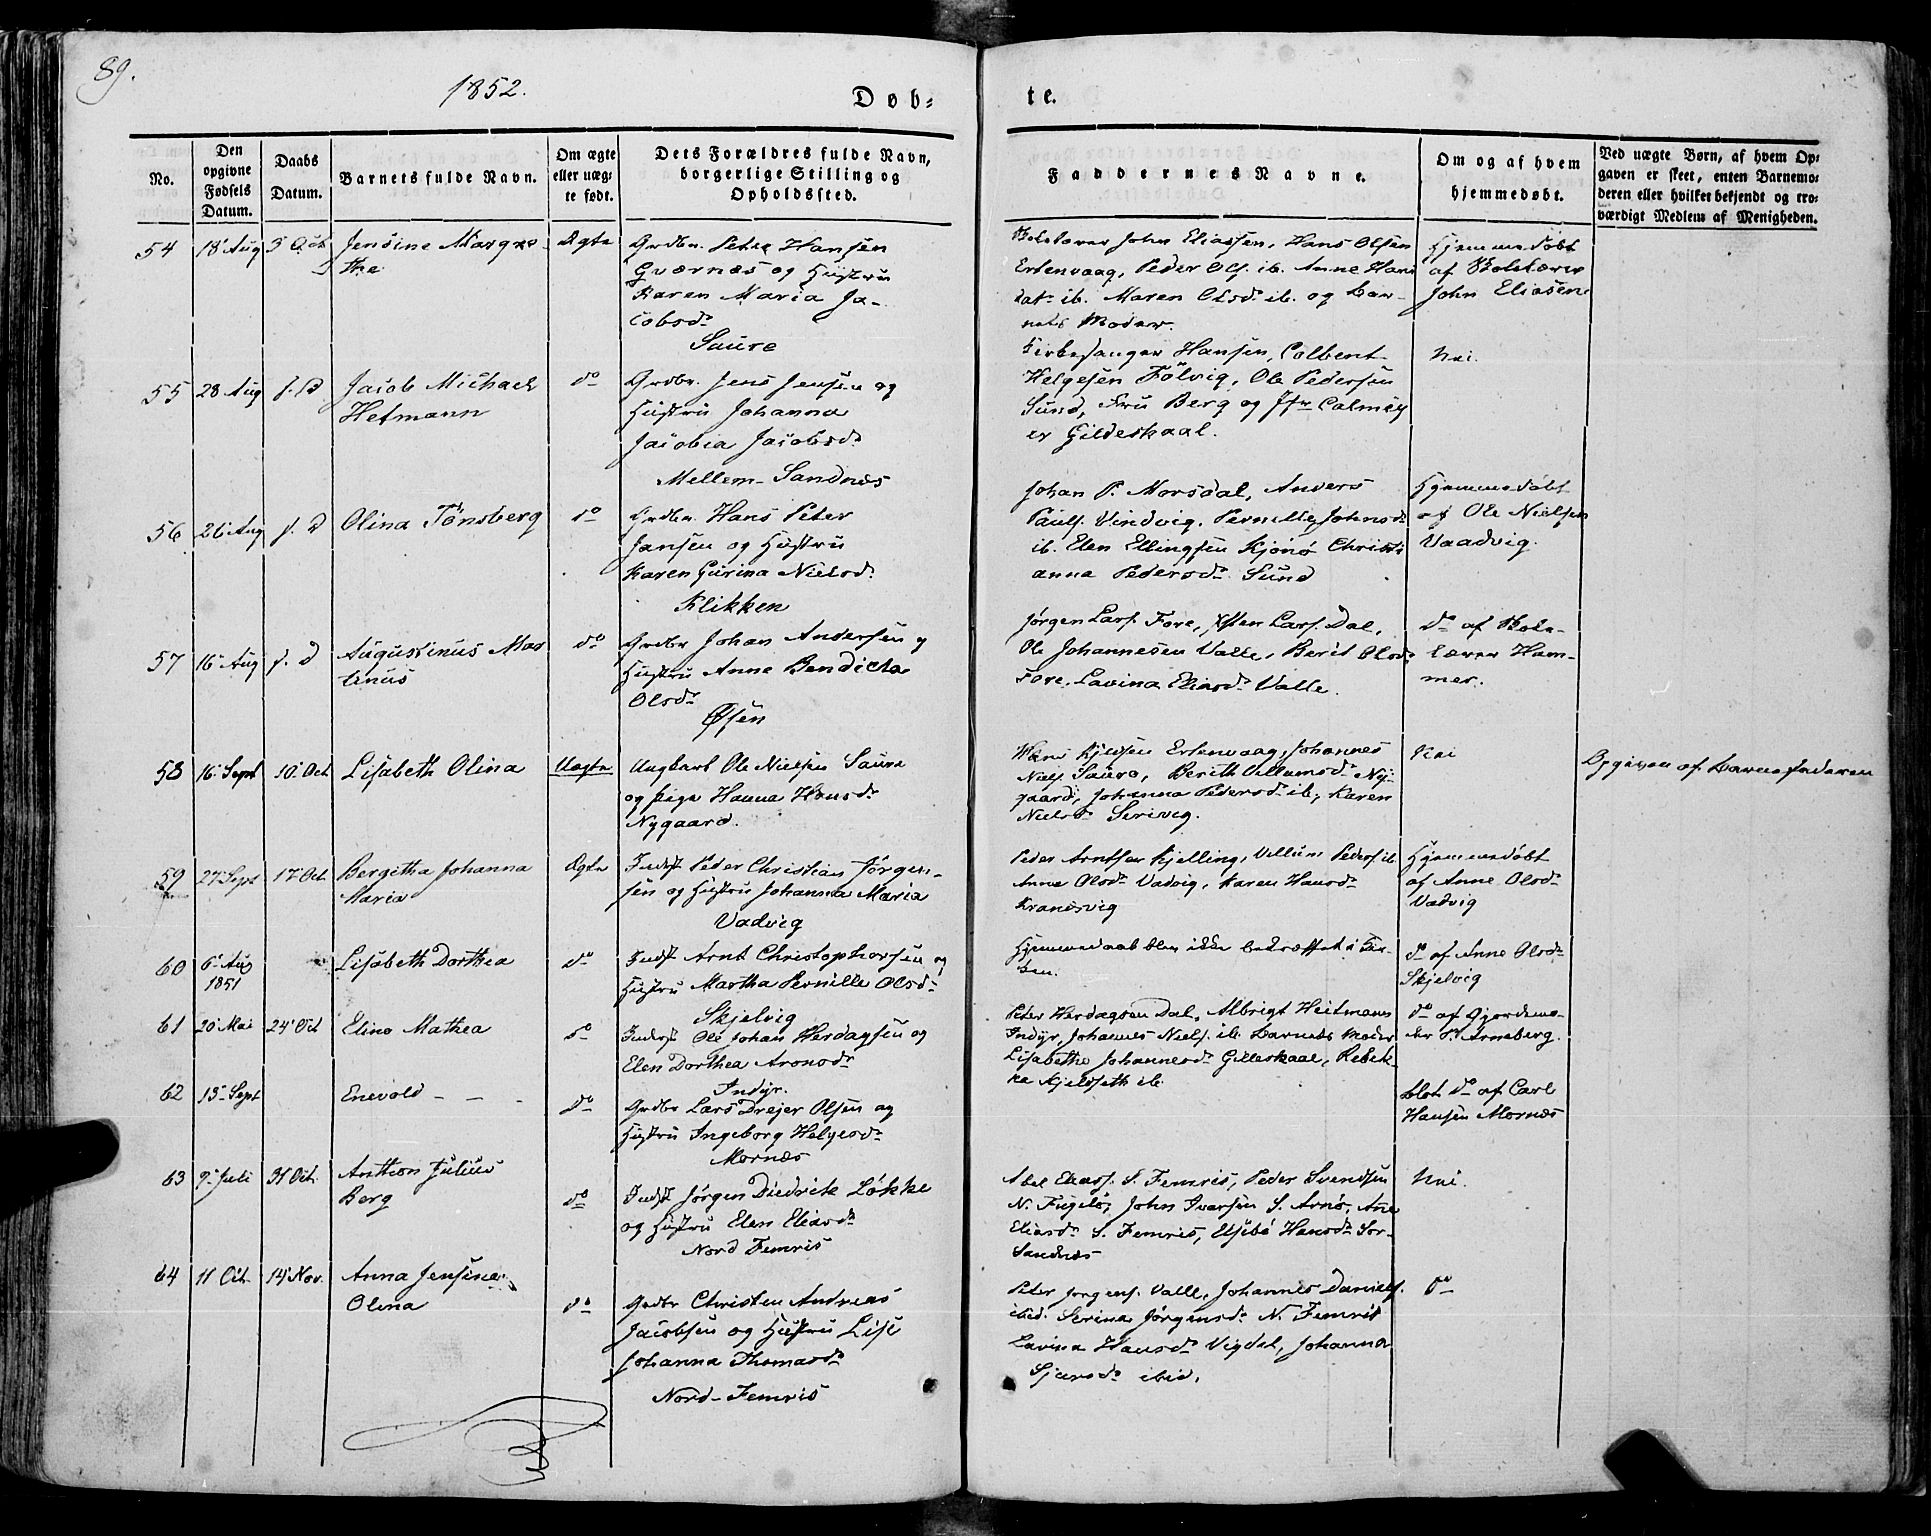 89.
1852.
Døb=
te.
No.
Den opgivne Fødsels Datum.
Daabs Datum.
Barnets fulde Navn.
Om ægte eller uæg=te født.
Dets Forældres fulde Navn, borgerlige Stilling og Opholdssted.
Faddernes Navne.
Om og af hvem hjemmedøbt.
Ved uægte Børn, af hvem Op=gaven er skeet, enten Barnemo=deren eller hvilket bekjendt og tro=værdigt Medlem af Menigheden.
54 18 Aug 3 Oct Jensine Margre
the
Ægte
Grdbr. Peter Hansen
Gværnæs og Hustru
Karen Maria Ja-
cobsd.
Saure
Skolelærer John Eliassen, Hans Olsen
Ertenvaag, Peder Ols. ib. Anne Hans
dat. ib. Maren Olsd. ib. og Bar-
nets Moder.
Hjemmedøbt
af Skolelærer
John Eliasen
55 28 Aug s. D Jacob Michael
Hetmann
do
Grdbr. Jens Jensen og
Hustru Johanna
Jacobia Jacobsd.
Mellem-Sandnæs
Kirkesanger Hansen, Colbent
Helgesen Fölvig, Ole Pedersen
Sund, Fru Berg og Jfr Calmey
er Gildeskaal.
Nei.
56 26 Aug s. D Olina Tönsberg
do
Grdbr. Hans Peter
Jansen og Hustru
Karen Gurina Nielsd.
Klikken
Johan P. Morsdal, Anders
Pauls. Vindvig, Pernille Johnsd
ib. Elen Ellingsen Kjönö Christi
anna Pedersd. Sund
Hjemmedøbt
af Ole Nielsen
Vaadvig.
57 16 Aug s. D Augustinus Mar
tinus
do
Grdbr Johan Andersen og
Hustru Anne Bendicta
Olsd.
Øsen
Jørgen Lars. Fore, Lars. Dal,
Ole Johannesen Valle, Berit Olsd.
Fore, Lavina Eliasd. Valle.
do af Skole-
lærer Ham-
mer.
58 16 Sept 10 Oct Lisabeth Olina
Uægte
Ungkarl Ole Nielsen Saura
og pige Hanna Hansd.
Nygaard.
Hans Ertenvaag, Johannes
Niels. Saura, Berith Villumsd. Ny-
gaard, Johanna Pedersd. ib., Karen
Nielsd. Serivig.
Nei
Opgiven af Barnefaderen
59 27 Sept 17 Oct Bergitha Johanna
Maria
Ægte
Inderst Peder Christian Jörgen-
sen og Hustru Johanna Maria
Vadvig
Peder Arntsen Kjelling, Villum Peders ib
Anne Olsd. Vadvig, Karen Hansd.
Kranesvig
Hjemmedøbt
af Anne Olsd.
Vadvig
60 6 Aug
1851
Lisabeth Dorthea
do
Inderst Arnt Christophersen og
Hustru Martha Pernille Olsd.
Skjelvig
Hjemmedaab blev ikke bekræftet i Kir-
ken.
do af Anne Olsd.
Skjelvig
61 20 Mai 24 Oct Elina Mathea
do
Inderst Ole Johan Herdagsen og
Elen Dorthea Aronsd.
Indyr.
Peter Herdagsen Dal, Albrigt Heitmann
Indyr, Johannes Niels. ib. Barnets Moder
Lisabetha Johannesd. Gilleskaal, Rebek-
ka Kjeldseth ib.
do af Gjordemo-
der P. Arneberg.
62 13 Sept Enevold - - -
do
Grdbr Lars Drejer Olsen og
Hustru Ingeborg Helgesd.
Mornæs
blot do af Carl
Hansen Mornæs
63 9 Juli 31 Oct. Anthon Julius
Berg
do
Inderst Jörgen Diedrik Lökke
og Hustru Elen Eliasd.
Nord Femris
Abel Elias. S. Femris, Peder Svendsen
N. Fugelö, John Ivarsen S. Arnö, Ane
Eliasd. S. Femris, Elsebe Hansd. Sör-
Sandnæs
Nei.
64 11 Oct. 14 Nov. Anna Jensine
Olina
do
Grdbr Christen Andreas
Jacobsen og Hustru Lise
Johanna Thomasd.
Nord-Femris
Peter Jorgens. Valle, Johannes Daniels.
ibid. Serina Jörgensd. N. Femris
Lavina Hansd. Vigdel, Johanna
Sjursd. ibid.
do